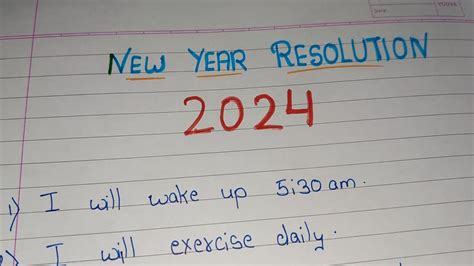 NEW YEAR RESOLUTION
2024
1) I will wake up 5:30 am.
2) I will exercise daily.